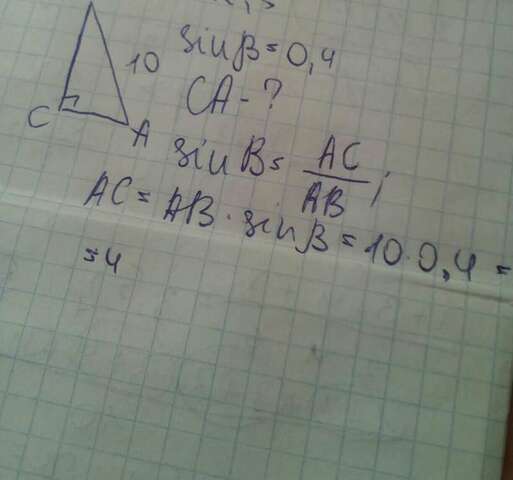 10
sin β = 0,4
CA - ?
C
A
sin B = AC / AB ;
AC = AB · sin β = 10 · 0,4 =
= 4